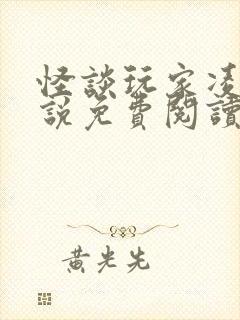 怪談玩家凌
說免費閱讀
黃光先